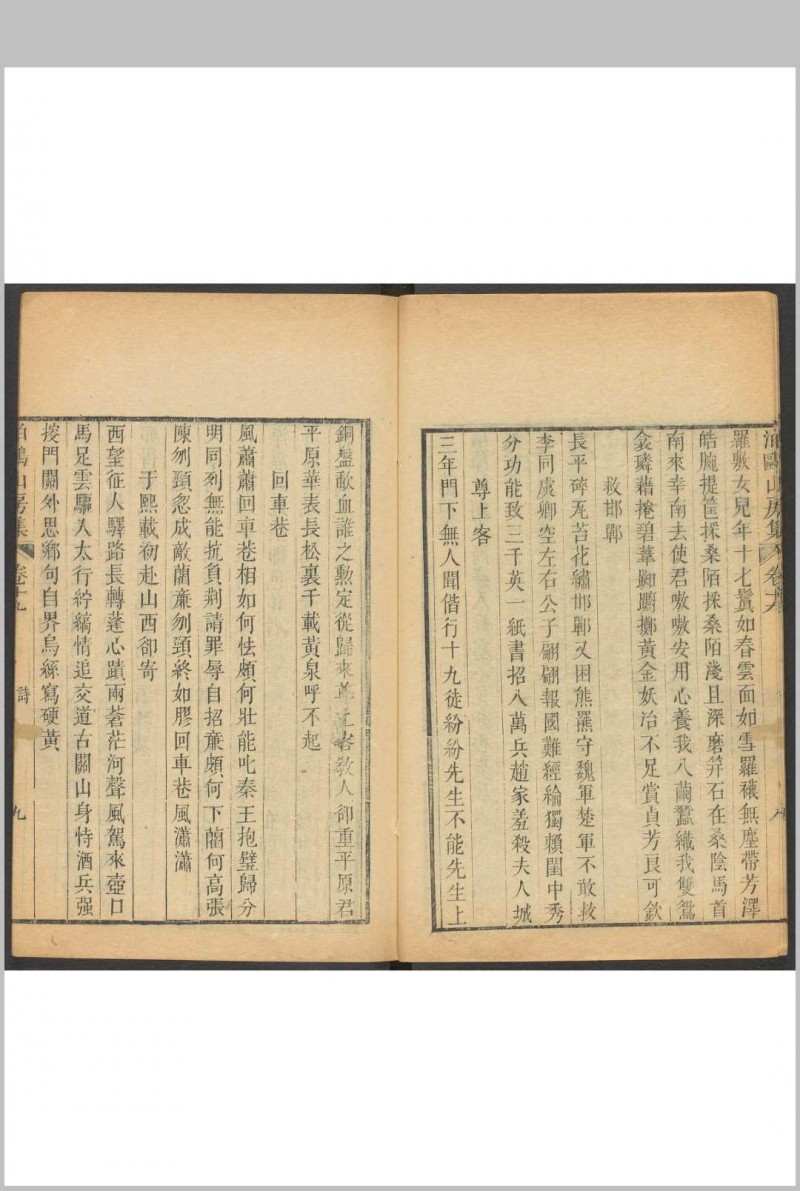 山房集 卷十
羅敷女兒年十七鬟如春雲面如雪羅襪無塵帶芳澤
皓腕提筐採桑陌採桑陌淺且深磨笄石在桑陰馬首
南來幸南去使君嗷嗷安用心養我八繭蠶織我雙鴛
衾璘藉捲碧葦踟躕擲黃金妖冶不足賞貞芳良可欽
救邯鄲
長平碎瓦苔花繡邯鄲又困熊羆守魏軍楚軍不敢救
李同虞卿空左右公子翩翩報國難經綸獨賴閨中秀
分功能致三千英一紙書招八萬兵趙家羞殺夫人城
尊上客
三年門下無人聞偕行十九徒紛紛先生不能先生上
銅盤歃血誰之勲定從歸來尊上客教人卻重平原君
平原華表長松裏千載黃泉呼不起
回車巷
風蕭蕭回車巷相如何怯頗何壯能叱秦王抱璧歸分
明同列無能抗負荆請罪辱自招廉頗何下藺何高張
陳刎頸忽成敵藺廉刎頸終如膠回車巷風瀟瀟
于熙載初赴山西卻寄
西望征人驛路長轉蓬心蹟兩蒼茫河聲風駕來壺口
馬足雲驅入太行紵縞情追交道古關山身恃酒兵强
按門闌外思鄉句自界烏絲寫硬黃
鷗山房集 卷十九 詩 九